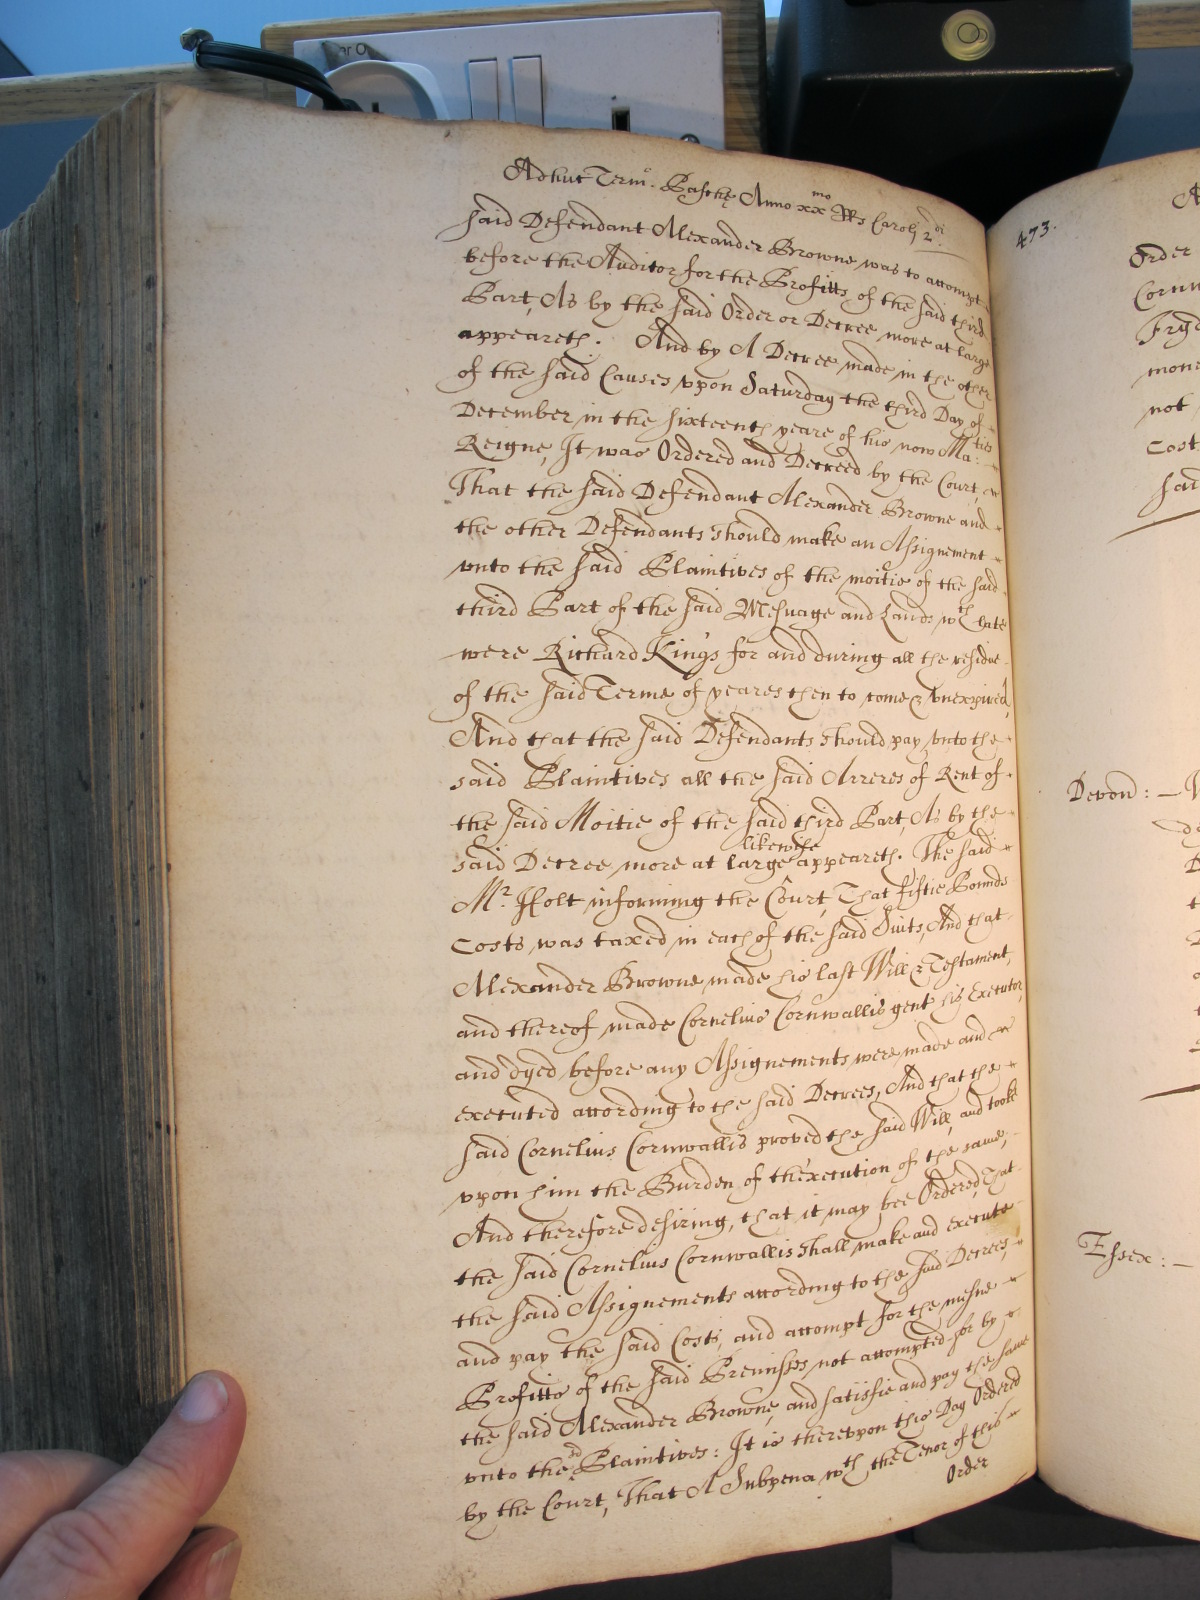 Adhuc Term:o Paschę Anno xxmo RRs Carolj 2di.
said Defendant Alexander Browne was to accompt
before the Auditor for the Profitts of the said third
Part, As by the said Order or Decree more at large
appeareth. And by A Decree made in the other
of the said Causes vpon Saturday the third Day of
December in the sixteenth yeare of his now Ma:ties
Reigne, It was Ordered and Decreed by the Court,
That the said Defendant Alexander Browne and
the other Defendants should make an Assignement
vnto the said Plaintives of the moitie of the said
third Part of the said Mesuage and Lands wch late
were Richard Kings for and during all the residue
of the said Terme of yeares then to come & vnexpired,
And that the said Defendants should pay vnto the
said Plaintives all the said Arreres of Rent of
the said Moitie of the said third Part, As by the
said Decree more at large likewise appeareth. The said
Mr. Holt informing the Court, That fiftie Pounds
Costs was taxed in each of the said Suits, And that
Alexander Browne made his last Will & Testament,
and thereof made Cornelius Cornwallis gent his Executor,
and dyed before any Assignements were made and
executed according to the said Decrees, And that the
said Cornelius Cornwallis proved the said Will, and tooke
vpon him the Burden of th'execution of the same,
And therefore desiring, that it may bee Ordered, That
the said Cornelius Cornwallis shall make and execute
the said Assignements according to the said Decrees,
and pay the said Costs, and accompt for the mesne
Profitts of the said Premisses not accompted for by
the said Alexander Browne, and satisfie and pay the same
vnto the sd Plaintives: It is therevpon this Day Ordered
by the Court, That A Subpena wth the Tenor of this
Order
473.
Order
Cornw
mone
not
Cost
sai
Devon: —
Essex: —